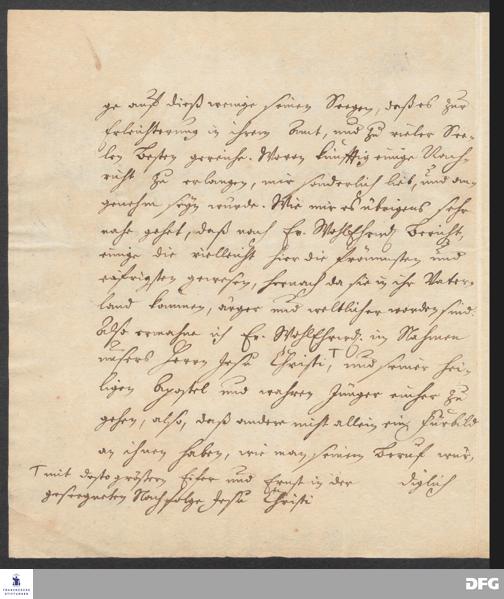 ge auf dieß wenige seinen Seegen, daß es zur
Erleichterung in ihrem Amt, und zu vieler See-
len Besten gereiche. Wovon künfftig einige Nach-
richt zu erlangen, mir sonderlich lieb, und an-
genehm seyn wurde. Wie mir es übrigens sehr
nahe gehet, daß nach Ew. WohlEhrwd. Bericht,
einige die vielleicht hier die frömmsten und
eifrigsten gewesen, hernach da sie in ihr Vater-
land kommen, ärger und weltlicher worden sind:
Also ermahne ich Ew. WohlEhrwd. im Nahmen
unsers Herrn Jesu Christi, † und seiner hei-
ligen Apostel und wahren Jünger einher zu
gehen, also, daß andere nicht allein ein Fürbild
an ihnen haben, wie man seinem Beruf wür-
diglich
† mit desto größern Eifer und Ernst in der
gesegneten Nachfolge Jesu Christi
FRANCKESCHE
STIFTUNGEN
DFG